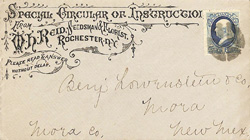 Special Circular of Instruction
FROM
W.H. REID, SEEDSMAN & FLORIST,
ROCHESTER N.Y.
PLEASE READ & ANSWER
WITHOUT DELAY.
Benj Lowenstein & Co,
Mora
Mora Co. New Mex.